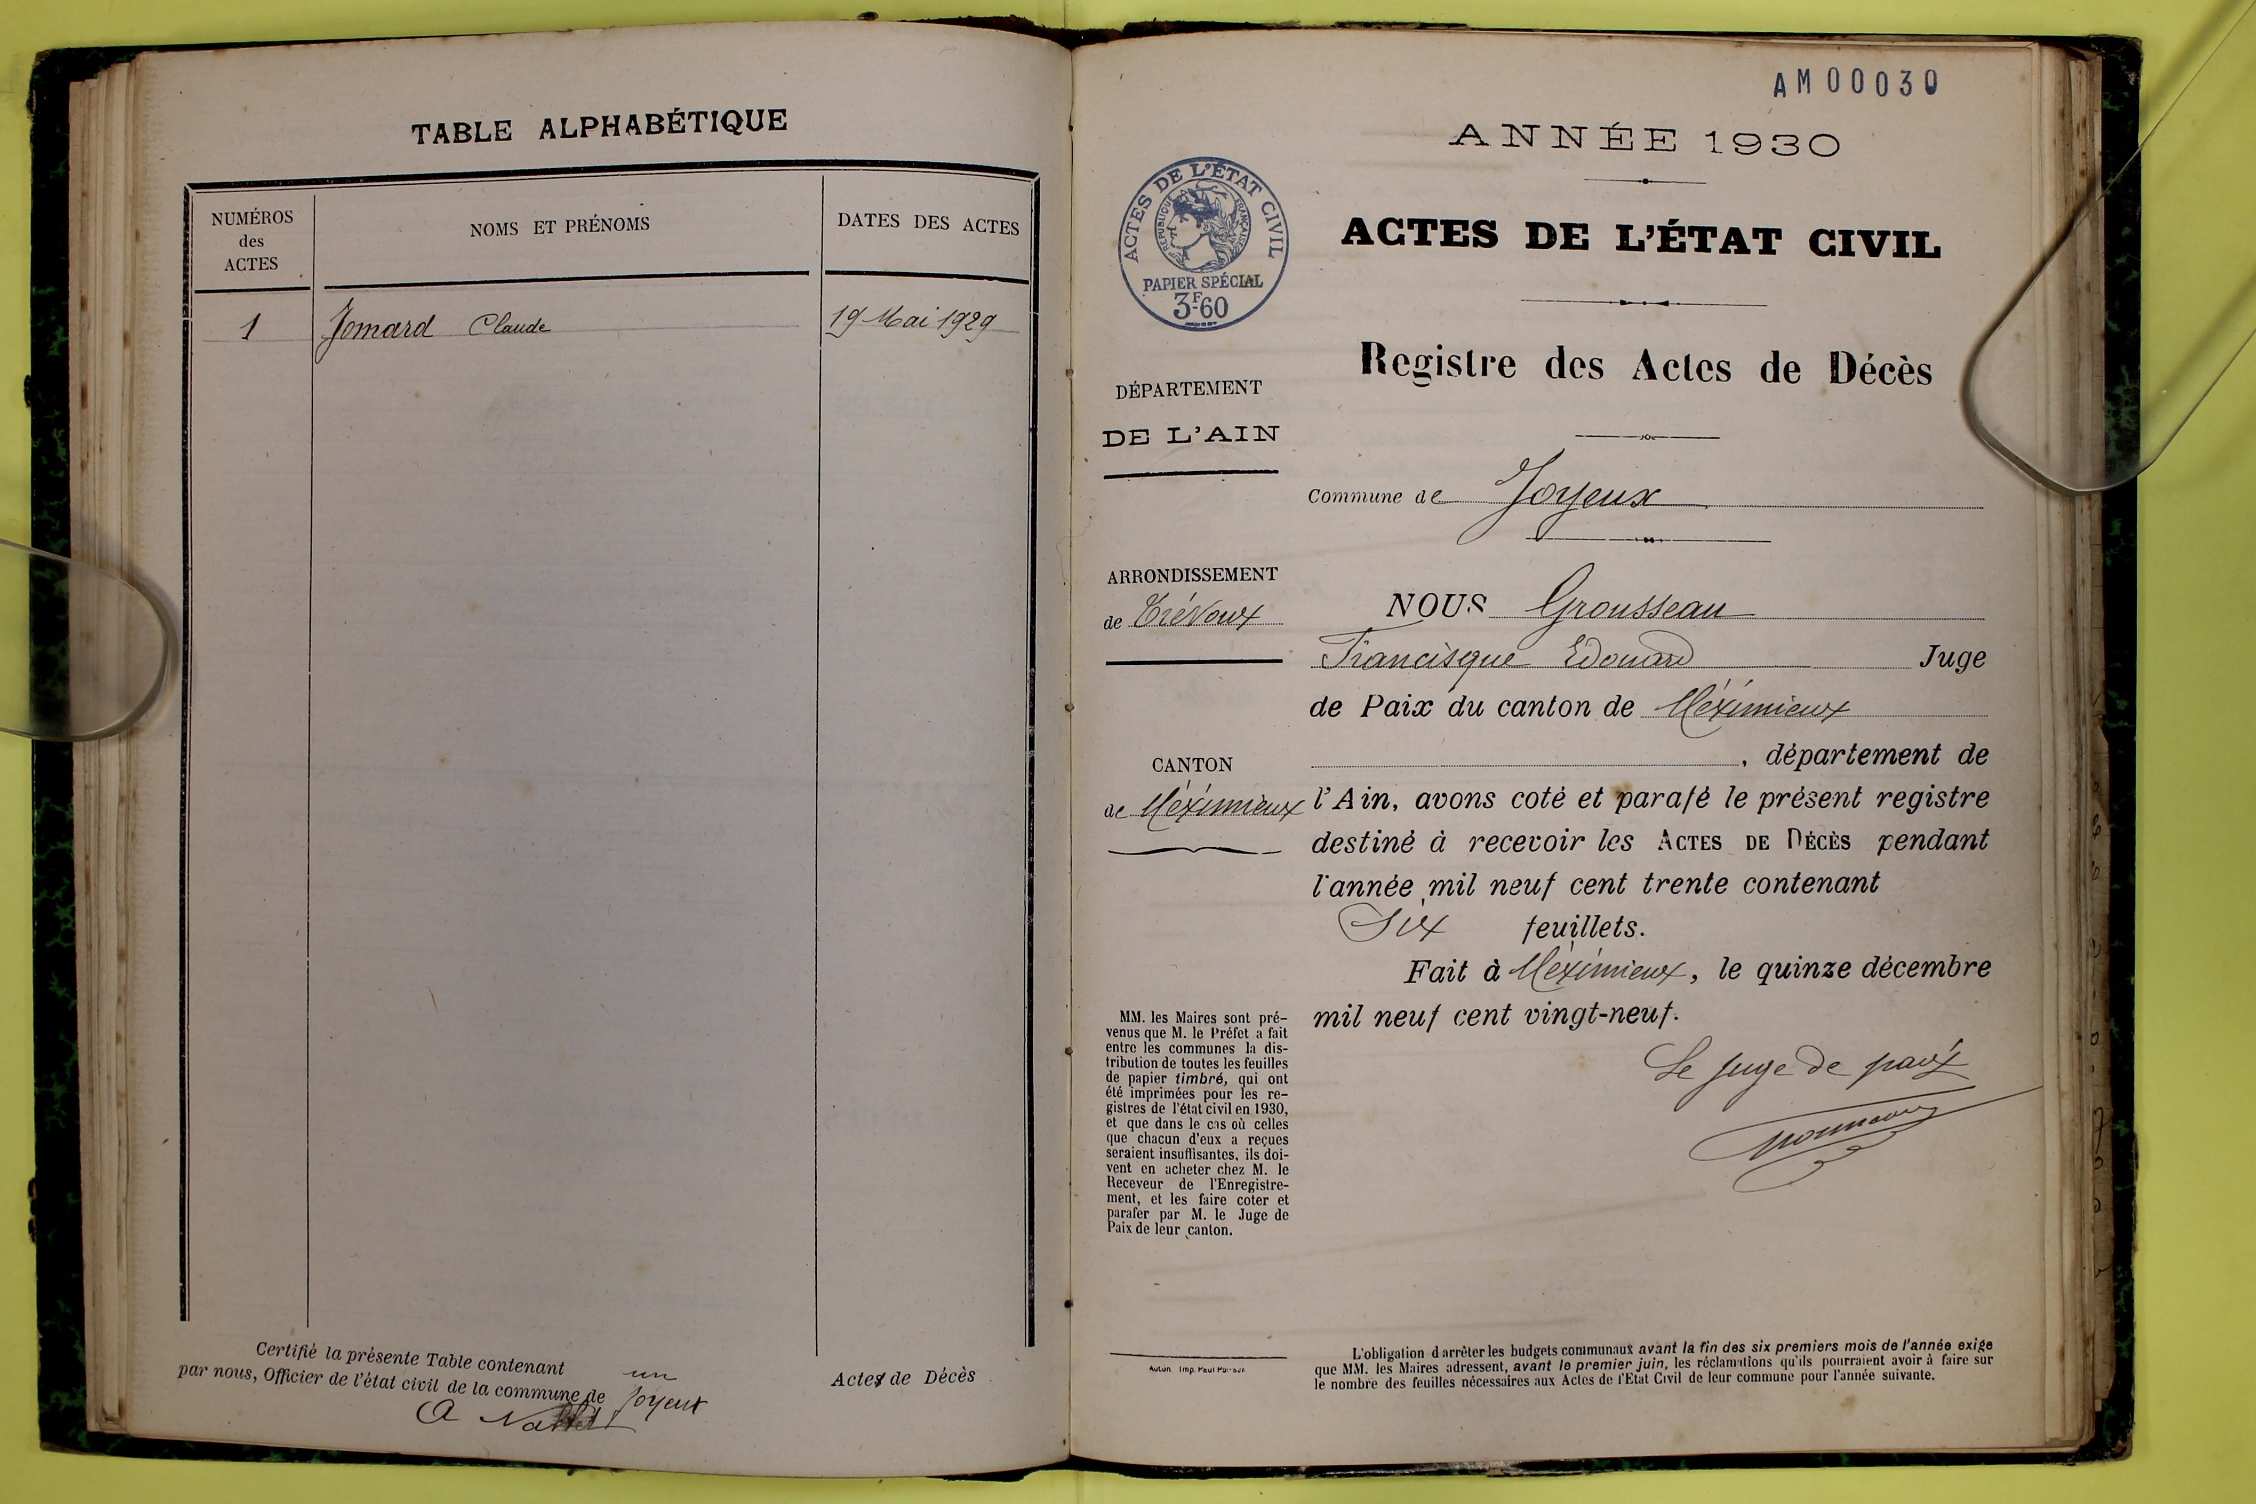 TABLE ALPHABÉTIQUE
NUMÉROS
des
ACTES
NOMS ET PRÉNOMS
DATES DES ACTES
1 Jomard Claude 19 Mai 1929
Certifié la présente Table contenant un Actes de Décès
par nous, Officier de l'état civil de la commune de Joyeux
AM00030
ANNÉE 1930
ACTES DE L'ÉTAT CIVIL
RÉPUBLIQUE FRANÇAISE
PAPIER SPÉCIAL
3F60
ACTES DE L'ÉTAT CIVIL
Registre des Actes de Décès
DÉPARTEMENT
DE L'AIN
Commune de Joyeux
ARRONDISSEMENT
de Trévoux
CANTON
de Méximieux
NOUS Grousseau
Francisque Edouard Juge
de Paix du canton de Méximieux
, département de
l'Ain, avons coté et parafé le présent registre
destiné à recevoir les ACTES DE DÉCÈS pendant
l'année mil neuf cent trente contenant
Six feuillets.
Fait à Méximieux, le quinze décembre
mil neuf cent vingt-neuf.
Le juge de paix
MM. les Maires sont pré-
venus que M. le Préfet a fait
entre les communes la dis-
tribution de toutes les feuilles
de papier timbré, qui ont
été imprimées pour les re-
gistres de l'état civil en 1930,
et que dans le cas où celles
que chacun d'eux a reçues
seraient insuffisantes, ils doi-
vent en acheter chez M. le
Receveur de l'Enregistre-
ment, et les faire coter et
parafer par M. le Juge de
Paix de leur canton.
Autun. Imp. Paul
L'obligation d'arrêter les budgets communaux avant la fin des six premiers mois de l'année exige
que MM. les Maires adressent, avant le premier juin, les réclamations qu'ils pourraient avoir à faire sur
le nombre des feuilles nécessaires aux Actes de l'Etat Civil de leur commune pour l'année suivante.